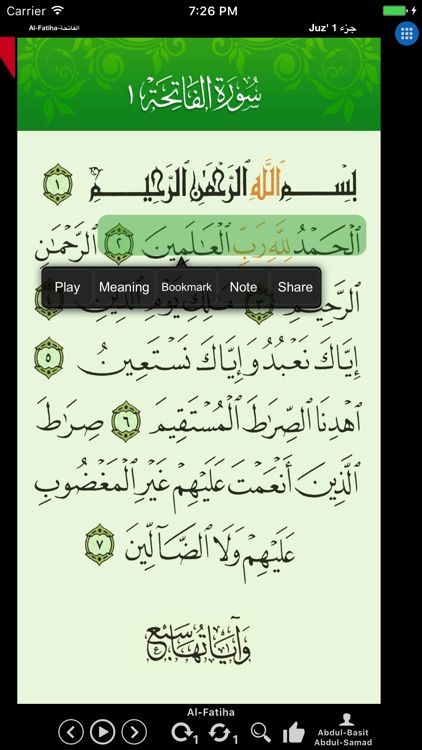 Carrier 7:26 PM
Al-Fatiha-الفاتحة Juz' 1 جزء
سُورَةُ الفَاتِحَةِ ١
بِسْمِ اللَّهِ الرَّحْمَٰنِ الرَّحِيمِ ١
الْحَمْدُ لِلَّهِ رَبِّ الْعَالَمِينَ ٢ الرَّحْمَٰنِ
Play Meaning Bookmark Note Share
الرَّحِيمِ ٣ مَالِكِ يَوْمِ الدِّينِ ٤
إِيَّاكَ نَعْبُدُ وَإِيَّاكَ نَسْتَعِينُ ٥
اهْدِنَا الصِّرَاطَ الْمُسْتَقِيمَ ٦ صِرَاطَ
الَّذِينَ أَنْعَمْتَ عَلَيْهِمْ غَيْرِ الْمَغْضُوبِ
عَلَيْهِمْ وَلَا الضَّالِّينَ ٧
وَآيَاتُهَا سَبْعٌ
Al-Fatiha
1 1
Abdul-Basit
Abdul-Samad